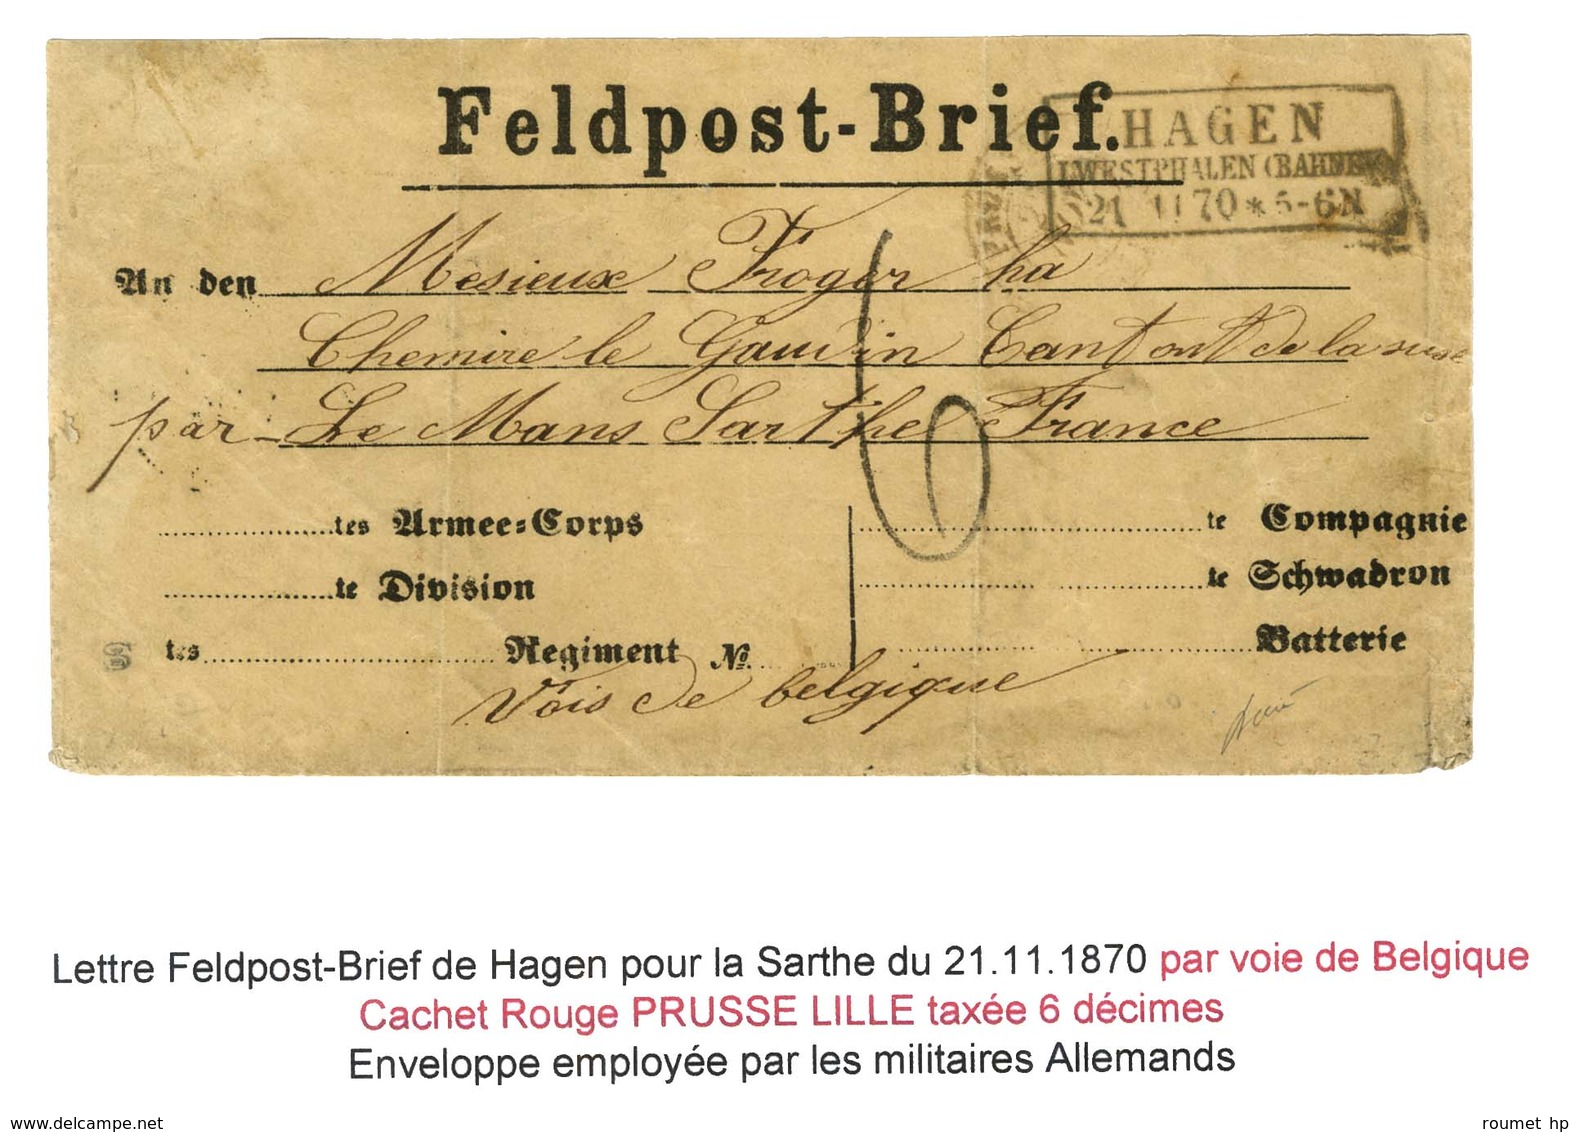 Feldpost-Brief.
HAGEN
I.WESTPHALEN (BAHNH
21 11 70 * 5-6N
An den Mesieux Froger ha
Chemire le Gaudin Cantont de la suse
par Le Mans Sarthe France
6
tes Armee=Corps
te Compagnie
te Division
te Schwadron
tes Regiment No
Batterie
S
Vois de belgique
Lettre Feldpost-Brief de Hagen pour la Sarthe du 21.11.1870 par voie de Belgique
Cachet Rouge PRUSSE LILLE taxée 6 décimes
Enveloppe employée par les militaires Allemands
www.delcampe.net
roumet hp